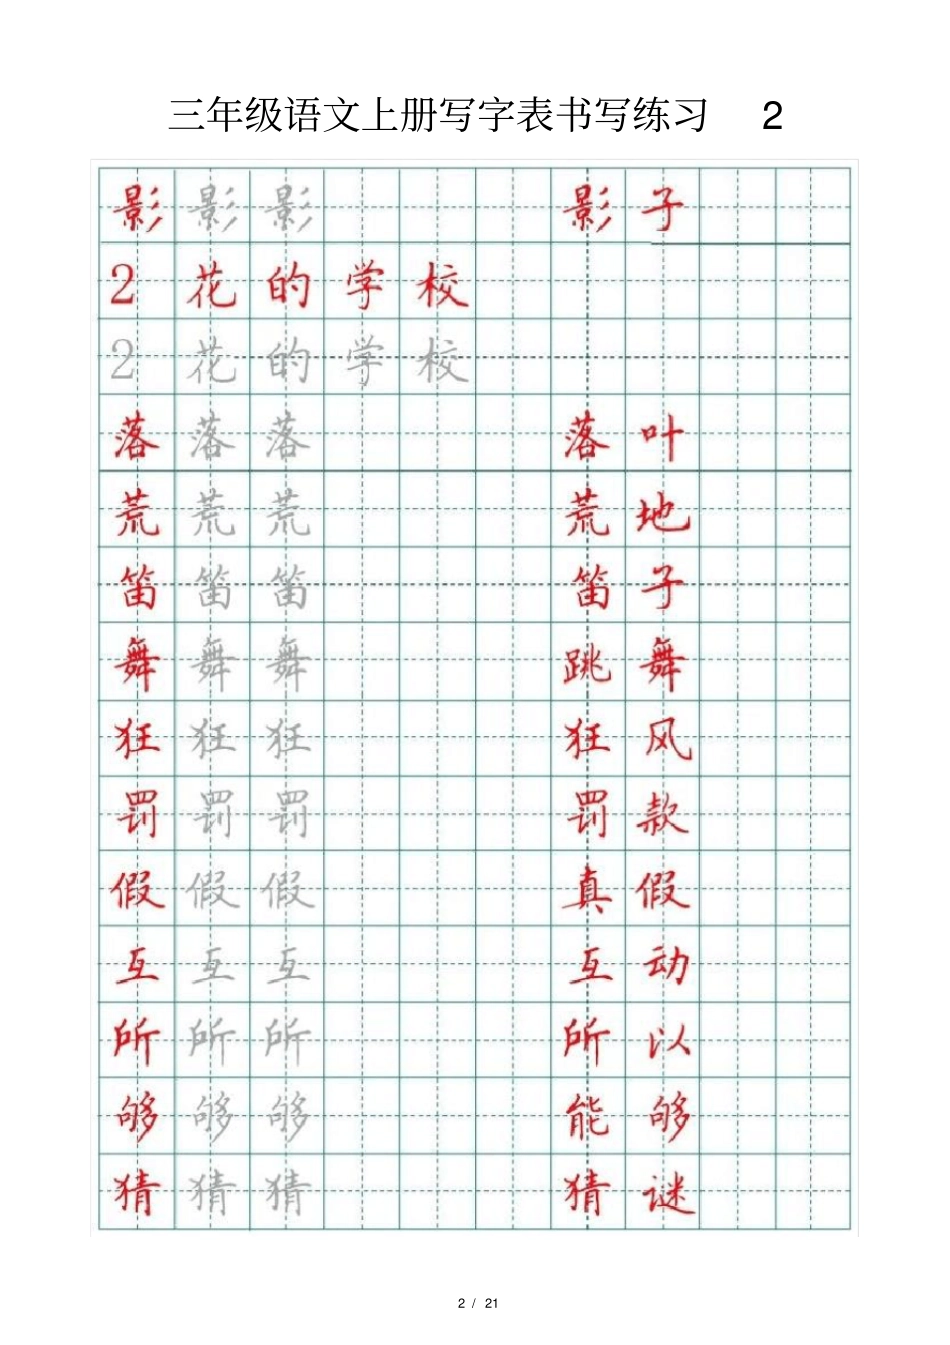 三年级语文上册写字表书写练习 2
影影影 影子
2 花的学校
2 花的学校
落落落 落叶
荒荒荒 荒地
笛笛笛 笛子
舞舞舞 跳舞
狂狂狂 狂风
罚罚罚 罚款
假假假 真假
互互互 互动
所所所 所以
够够够 能够
猜猜猜 猜谜
2 / 21